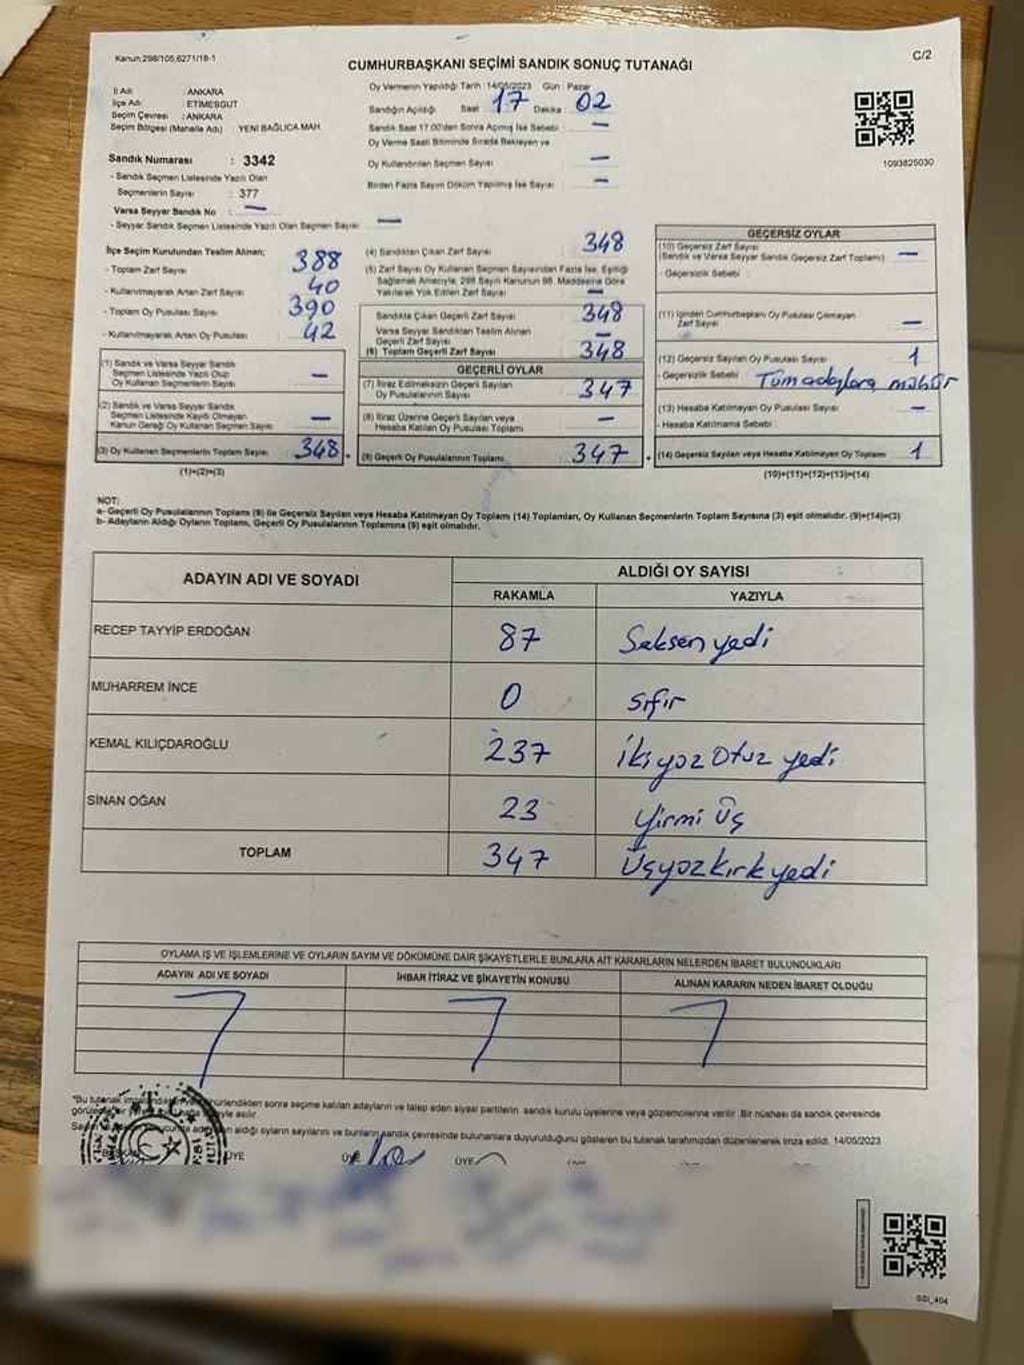 Kanun:298/105,6271/18-1
C/2
CUMHURBAŞKANI SEÇİMİ SANDIK SONUÇ TUTANAĞI
İl Adı : ANKARA
İlçe Adı : ETİMESGUT
Seçim Çevresi : ANKARA
Seçim Bölgesi (Mahalle Adı) YENİ BAĞLICA MAH.
Sandık Numarası : 3342
- Sandık Seçmen Listesinde Yazılı Olan
Seçmenlerin Sayısı : 377
Varsa Seyyar Sandık No : —
- Seyyar Sandık Seçmen Listesinde Yazılı Olan Seçmen Sayısı : —
Oy Vermenin Yapıldığı Tarih : 14/05/2023 Gün : Pazar
Sandığın Açıldığı Saat : 17 Dakika : 02
Sandık Saat 17:00'den Sonra Açılmış İse Sebebi : —
Oy Verme Saati Bitiminde Sırada Bekleyen ve
Oy Kullandırılan Seçmen Sayısı —
Birden Fazla Sayım Döküm Yapılmış İse Sayısı —
1093825030
İlçe Seçim Kurulundan Teslim Alınan;
- Toplam Zarf Sayısı 388
- Kullanılmayarak Artan Zarf Sayısı 40
- Toplam Oy Pusulası Sayısı 390
- Kullanılmayarak Artan Oy Pusulası 42
(1) Sandık ve Varsa Seyyar Sandık
Seçmen Listesinde Yazılı Olup
Oy Kullanan Seçmenlerin Sayısı —
(2) Sandık ve Varsa Seyyar Sandık
Seçmen Listesinde Kaydı Olmayan
Kanun Gereği Oy Kullanan Seçmen Sayısı —
(3) Oy Kullanan Seçmenlerin Toplam Sayısı 348
(1)+(2)=(3)
(4) Sandıktan Çıkan Zarf Sayısı 348
(5) Zarf Sayısı Oy Kullanan Seçmen Sayısından Fazla İse, Eşitliği
Sağlamak Amacıyla; 298 Sayılı Kanunun 98. Maddesine Göre
Yakılarak Yok Edilen Zarf Sayısı —
Sandıkta Çıkan Geçerli Zarf Sayısı 348
Varsa Seyyar Sandıktan Teslim Alınan
Geçerli Zarf Sayısı —
(6) Toplam Geçerli Zarf Sayısı 348
GEÇERLİ OYLAR
(7) İtiraz Edilmeksizin Geçerli Sayılan
Oy Pusulalarının Sayısı 347
(8) İtiraz Üzerine Geçerli Sayılan veya
Hesaba Katılan Oy Pusulası Toplamı —
(9) Geçerli Oy Pusulalarının Toplamı 347
GEÇERSİZ OYLAR
(10) Geçersiz Zarf Sayısı
(Sandık ve Varsa Seyyar Sandık Geçersiz Zarf Toplamı) —
- Geçersizlik Sebebi :
(11) İçinden Cumhurbaşkanı Oy Pusulası Çıkmayan
Zarf Sayısı —
(12) Geçersiz Sayılan Oy Pusulası Sayısı 1
- Geçersizlik Sebebi : Tüm adaylara mühür
(13) Hesaba Katılmayan Oy Pusulası Sayısı —
- Hesaba Katılmama Sebebi :
(14) Geçersiz Sayılan veya Hesaba Katılmayan Oy Toplamı 1
(10)+(11)+(12)+(13)=(14)
NOT:
a- Geçerli Oy Pusulalarının Toplamı (9) ile Geçersiz Sayılan veya Hesaba Katılmayan Oy Toplamı (14) Toplamları, Oy Kullanan Seçmenlerin Toplam Sayısına (3) eşit olmalıdır. (9)+(14)=(3)
b- Adayların Aldığı Oyların Toplamı, Geçerli Oy Pusulalarının Toplamına (9) eşit olmalıdır.
ADAYIN ADI VE SOYADI
ALDIĞI OY SAYISI
RAKAMLA YAZIYLA
RECEP TAYYİP ERDOĞAN 87 Seksen yedi
MUHARREM İNCE 0 sıfır
KEMAL KILIÇDAROĞLU 237 İki yüz otuz yedi
SİNAN OĞAN 23 Yirmi üç
TOPLAM 347 Üçyüzkırkyedi
OYLAMA İŞ VE İŞLEMLERİNE VE OYLARIN SAYIM VE DÖKÜMÜNE DAİR ŞİKAYETLERLE BUNLARA AİT KARARLARIN NELERDEN İBARET BULUNDUKLARI
ADAYIN ADI VE SOYADI İHBAR İTİRAZ VE ŞİKAYETİN KONUSU ALINAN KARARIN NEDEN İBARET OLDUĞU
*Bu tutanak sonra seçime katılan adayların ve talep eden siyasi partilerin sandık kurulu üyelerine veya gözlemcilerine verilir. Bir nüshası da sandık çevresinde
asılır.
aldığı oyların sayılarını ve bunların sandık çevresinde bulunanlara duyurulduğunu gösteren bu tutanak tarafımızdan düzenlenerek imza edildi. 14/05/2023
ÜYE ÜYE ÜYE